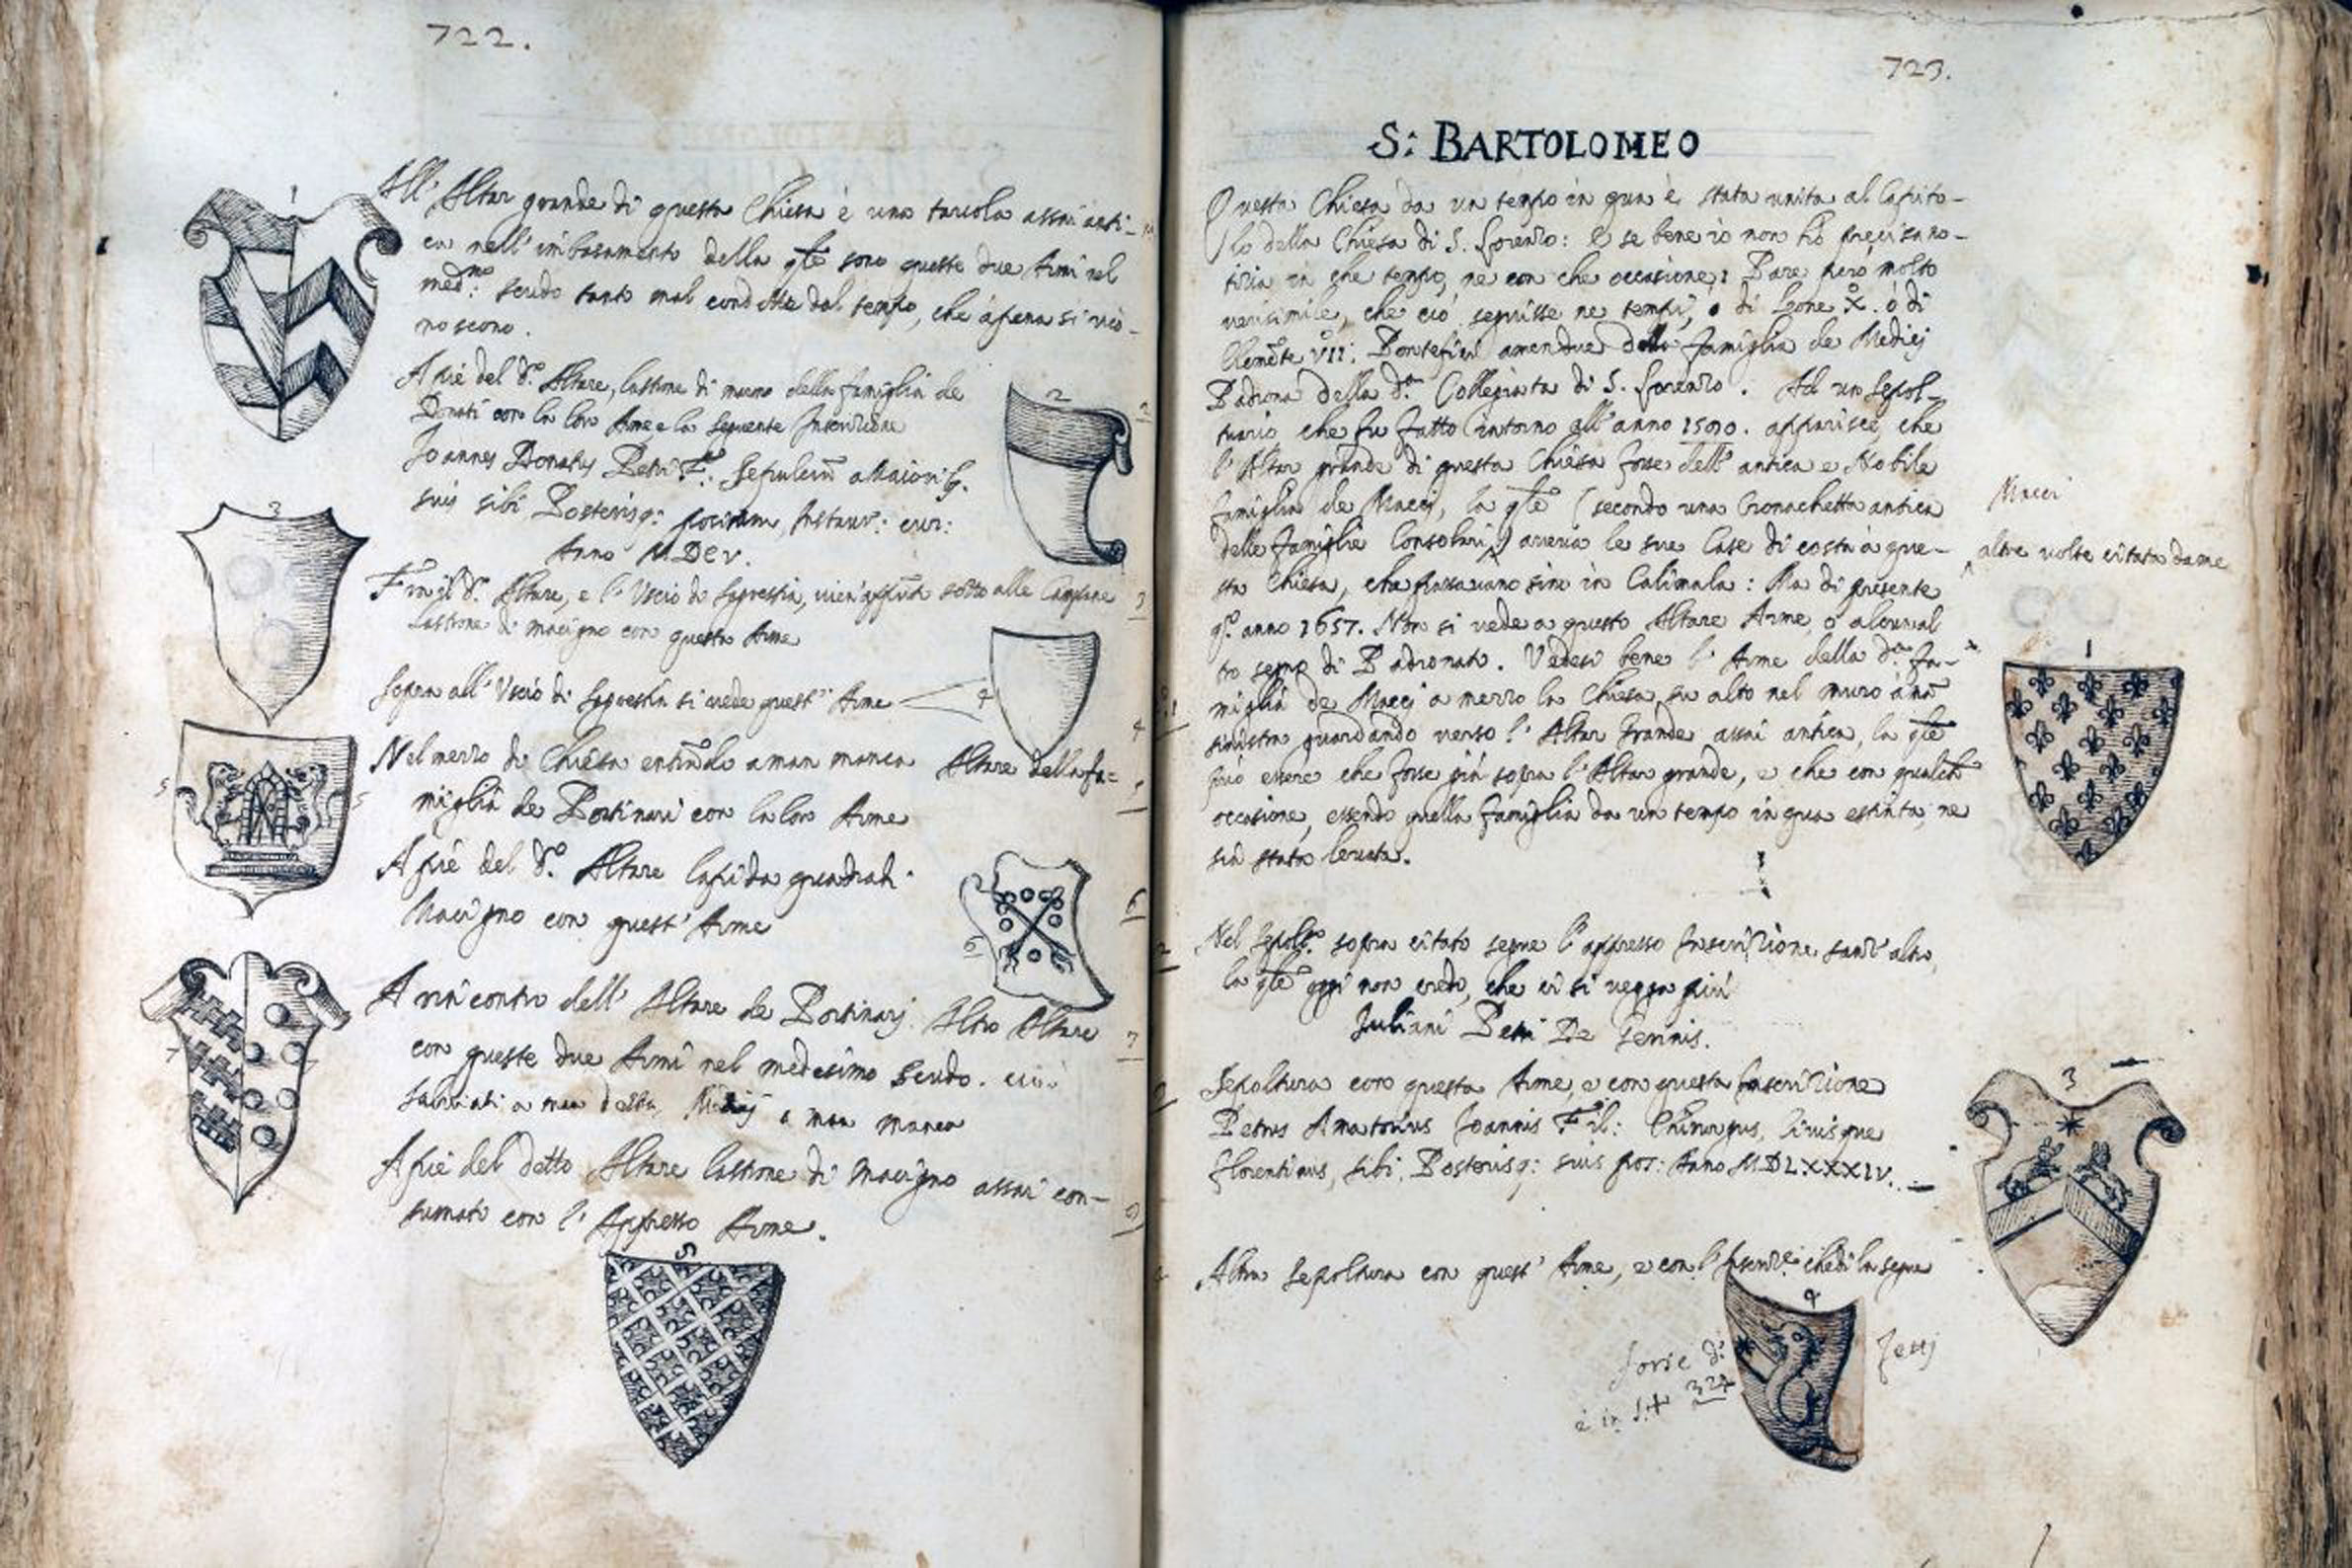 722.
1
All' Altar grande di questa Chiesa è una tavola assai anti-
ca nell'imbasamento della qle sono queste due Armi nel
medmo: scudo tanto mal condotte dal tempo, che àpena si rico-
noscono.
A piè del do. Altare, lastrone di marmo della famiglia de
Donati con la loro Arme e la seguente Inscrizione
2
Joannes Donatus Petri F.: Sepulcrũ a Maiorib.
suis sibi Posterisq: positum, Instaur: cur:
Anno MDCV.
3
Fra il do. Altare, e l'Uscio di Sagrestia, sotto alle Campane
lastrone di macigno con questa Arme
Sopra all'Uscio di Sagrestia si vede quest' Arme
4
Nel mezzo di Chiesa entrãdo a man manca Altare della fa-
miglia de Portinari con la loro Arme
5
A piè del do. Altare lapida quadrata di
Macigno con quest' Arme
6
A rincontro dell' Altare de Portinarj Altro Altare
con queste due Armi nel medesimo scudo. cioè
a man destra, Medicj a man manca
7
A piè del detto Altare lastrone di Macigno assai con-
sumato con l'Appresso Arme.
723.
S: BARTOLOMEO
Questa Chiesa da un tempo in qua è stata unita al Capito-
lo della Chiesa di S. Lorenzo: e se bene io non hò precisa no-
tizia in che tempo, ne con che occasione; Pare però molto
verisimile, che ciò seguisse ne tempi, ò di Leone X. ò di
Clemẽte VII: Pontefici amendue della famiglia de Medicj
Padrona della da. Collegiata di S. Lorenzo. Ad un Sepol-
tuario, che fu fatto intorno all'anno 1590. apparisce, che
l'Altar grande di questa Chiesa fosse dell'antica e Nobile
famiglia de Maccj, la qle (secondo una Cronachetta antica
Macci
delle famiglie Consolari,) aveva le sue Case di costa à que-
altre volte citata da me
sta Chiesa, che passavano sino in Calimala: Ma di presente
qo. anno 1657. Non si vede a questo Altare Arme, o alcun al-
tro segno di Padronato. Vedesi bene l'Arme della da. fa-
miglia de Maccj a mezzo la Chiesa, su alto nel muro à mã
sinistra guardando verso l'Altar Grande assai antica, la qle
può essere che fosse già sopra l'Altar grande, e che con qualch'
occasione, essendo quella famiglia da un tempo in qua estinta, ne
sia stata levata.
1
Nel Sepolto. sopra citato segue l'appresso Inscrizione, senz'altro,
la qle oggi non credo, che vi si vegga più
Juliani Petri De Gennis.
Sepoltura con questa Arme, e con questa Inscrizione
3
Petrus Amatorius Joannis Fil: Chirurgus, Civisque
florentinus, sibi, Posterisq: suis pos: Anno MDLXXXIV.
Altra Sepoltura con quest' Arme, e con l'Inscrize. che di la segue
4
forse di
Jesij
è in S. + 324